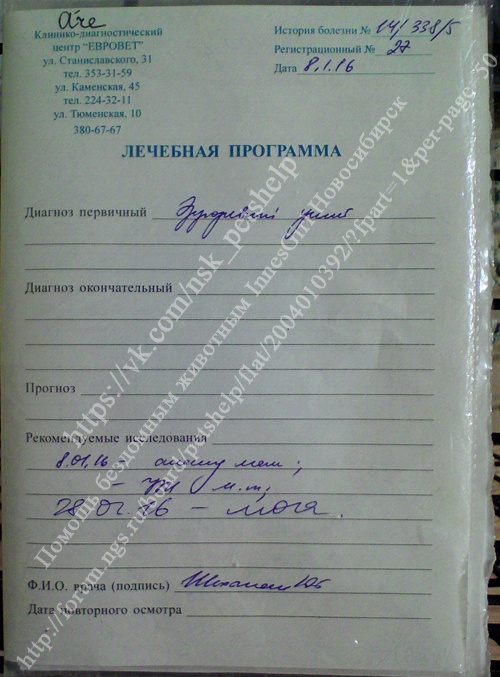 Аче
Клинико-диагностический
центр "ЕВРОВЕТ"
ул. Станиславского, 31
тел. 353-31-59
ул. Каменская, 45
тел. 224-32-11
ул. Тюменская, 10
380-67-67
История болезни № 14/338/5
Регистрационный № 27
Дата 8.1.16
ЛЕЧЕБНАЯ ПРОГРАММА
Диагноз первичный
Диагноз окончательный
Прогноз
Рекомендуемые исследования
8.01.16 -
28.01.16 - моча
Ф.И.О. врача (подпись)
Дата повторного осмотра
https://vk.com/nsk_petshelp
Помощь бездомным животным InnesOm Новосибирск
http://forum.ngs.ru/board/petshelp/flat/2004010392/?fpart=1&per-page=50